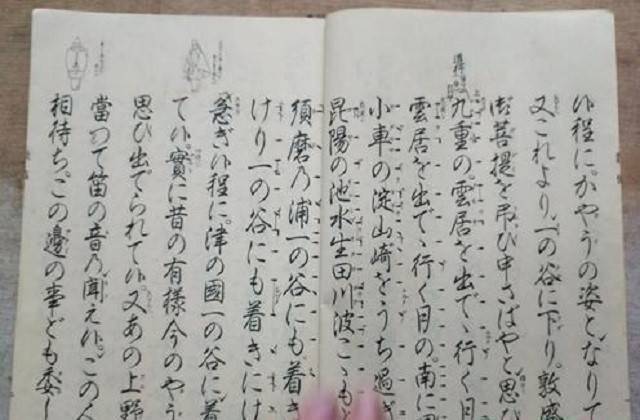 候程に。かやうの姿となりて
又これより。一の谷に下り。敦盛
御菩提を弔び申さばやと思
九重の。雲居を出でゝ行く月
雲居を出でゝ行く月の。南に
小車の淀山崎をうち過ぎ
昆陽の池水生田川波こゝもと
須磨乃浦一の谷にも着き
けり一の谷にも着きにけ
急ぎ候程に。津の國一の谷に着
て候。實に昔の有様今のやう
思ひ出でられて候。又あの上野
當つて笛の音乃聞え候。この人
相待ち。この邊の事ども委し